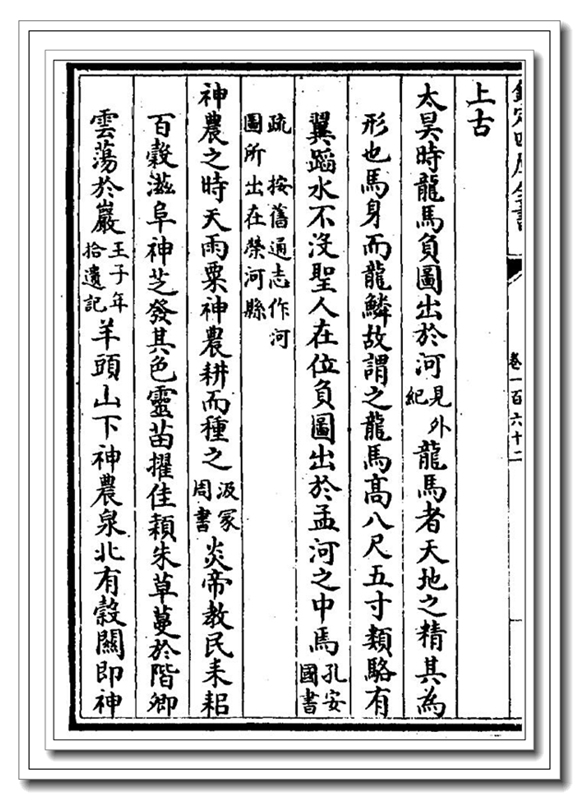 欽定四庫全書
卷一百六十二
上古
太昊時龍馬負圖出於河見外紀龍馬者天地之精其為
形也馬身而龍鱗故謂之龍馬高八尺五寸類駱有
翼蹈水不沒聖人在位負圖出於孟河之中焉孔安國書
疏 按舊通志作河圖所出在榮河縣
神農之時天雨粟神農耕而種之汲冢周書炎帝教民耒耜
百穀滋阜神芝發其色靈苗擢佳穎朱草蔓於階卿
雲蕩於巖王子年拾遺記羊頭山下神農泉北有穀關即神